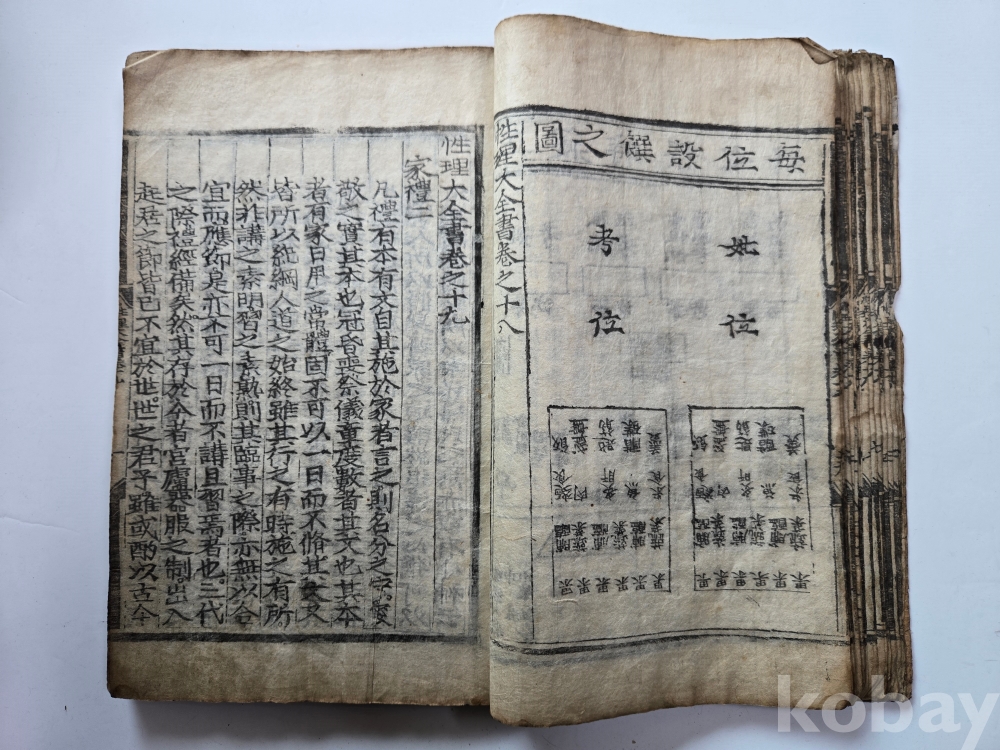 每位設饌之圖
妣位
考位
果果果果果果
果果果果果果
性理大全書卷之十八
性理大全書卷之十九
家禮二
凡禮有本有文自其施於家者言之則名分之守愛
敬之實其本也冠昏喪祭儀章度數者其文也其本
者有家日用之常體固不可以一日而不脩其文又
皆所以紀綱人道之始終雖其行之有時施之有所
然非講之素明習之素熟則其臨事之際亦無以合
宜而應節是亦不可一日而不講且習焉者也三代
之際禮經備矣然其存於今者宮廬器服之制出入
起居之節皆已不宜於世世之君子雖或酌以古今
kobay